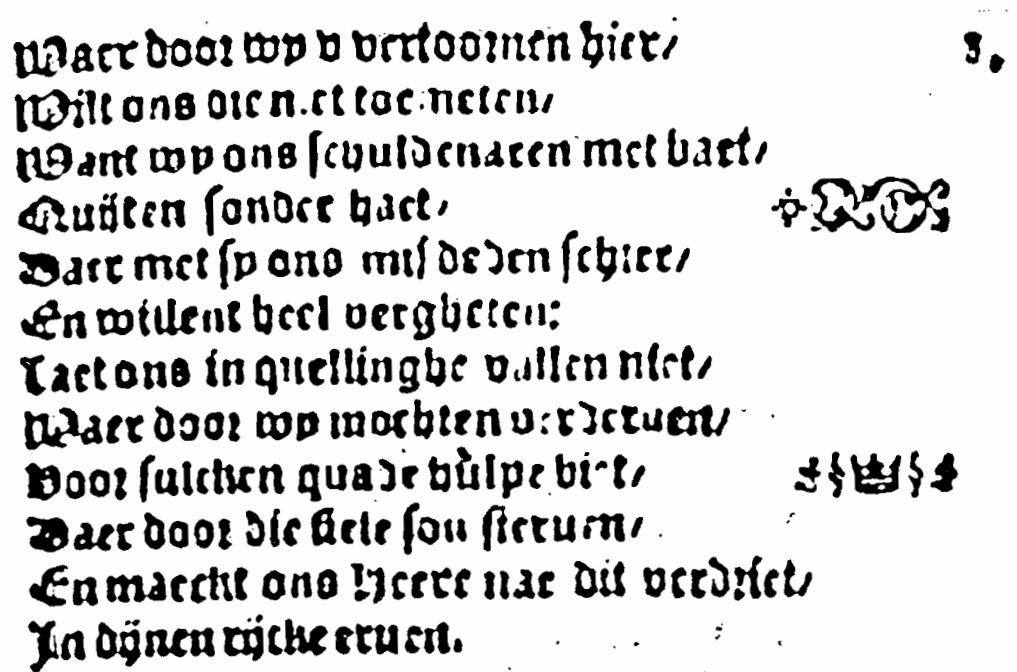 Waer door wy v vertoornen hier/
3.
Wilt ons die niet toe meten/
Want wy ons schuldenaren met vaet/
Quijten sonder haet/
Daer met sy ons misdeden schier/
En willent heel vergheten:
Laet ons in quellinghe vallen niet/
Waer door wy mochten verderuen/
Voor sulcken quade hůlpe biet/
Daer door die siele sou steruen/
En maeckt ons Heere nae dit verdriet/
In dijnen rijcke eruen.